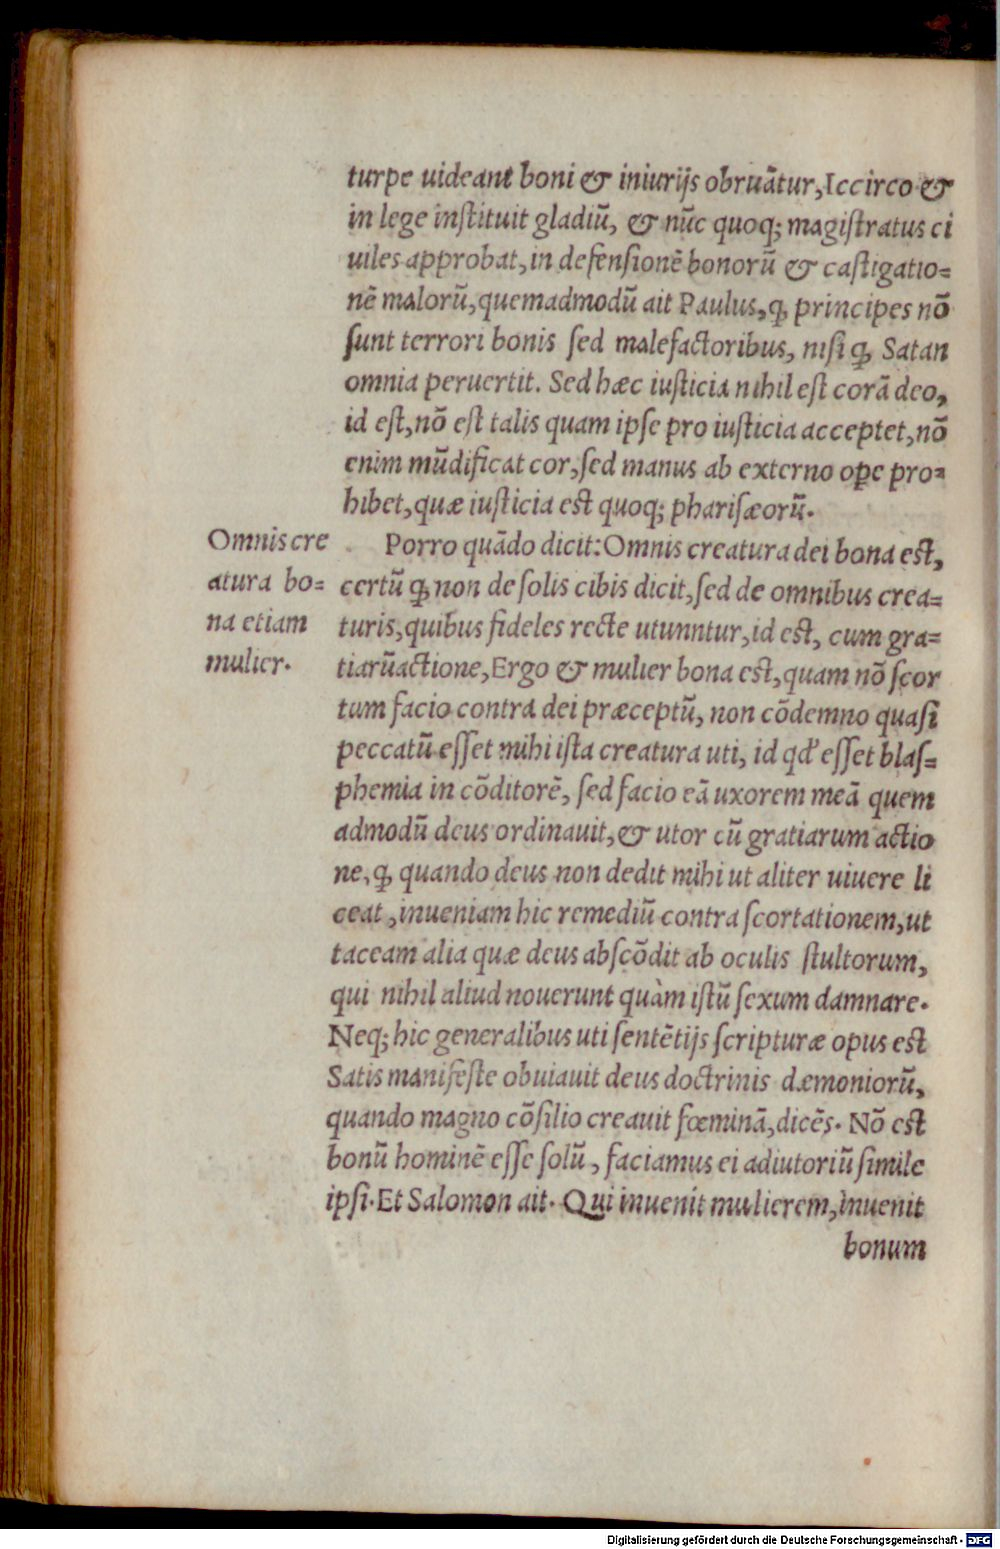 turpe uideant boni & iniurijs obruãtur, Iccirco &
in lege instituit gladiũ, & nũc quoq; magistratus ci
uiles approbat, in defensionẽ bonorũ & castigatio=
nẽ malorũ, quemadmodũ ait Paulus, ꝙ principes nõ
sunt terrori bonis sed malefactoribus, nisi ꝙ Satan
omnia peruertit. Sed hæc iusticia nihil est corã deo,
id est, nõ est talis quam ipse pro iusticia acceptet, nõ
enim mũdificat cor, sed manus ab externo opere pro=
hibet, quæ iusticia est quoq; pharisæorũ.
Omnis cre
atura bo=
na etiam
mulier.
Porro quãdo dicit: Omnis creatura dei bona est,
certũ ꝙ non de solis cibis dicit, sed de omnibus crea=
turis, quibus fideles recte utunntur, id est, cum gra=
tiarũactione, Ergo & mulier bona est, quam nõ scor
tum facio contra dei præceptũ, non cõdemno quasi
peccatũ esset mihi ista creatura uti, id qd' esset blas=
phemia in cõditorẽ, sed facio eã uxorem meã quem
admodũ deus ordinauit, & utor cũ gratiarum actio
ne, ꝙ quando deus non dedit mihi ut aliter uiuere li
ceat, inueniam hic remediũ contra scortationem, ut
taceam alia quæ deus abscõdit ab oculis stultorum,
qui nihil aliud nouerunt quàm istũ sexum damnare.
Neq; hic generalibus uti sentẽtijs scripturæ opus est
Satis manifeste obuiauit deus doctrinis dæmoniorũ,
quando magno cõsilio creauit fœminã, dicẽs. Nõ est
bonũ hominẽ esse solũ, faciamus ei adiutoriũ simile
ipsi. Et Salomon ait. Qui inuenit mulierem, inuenit
bonum
Digitalisierung gefördert durch die Deutsche Forschungsgemeinschaft - DFG